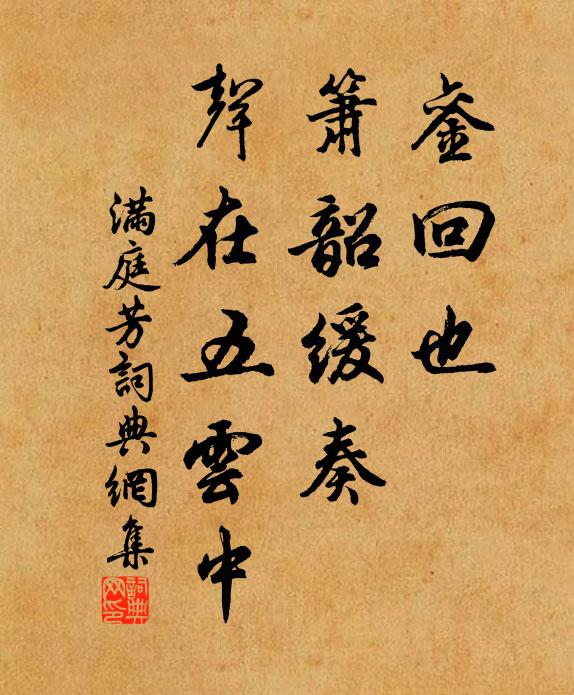 銮回也
簫韶緩奏
聲在五雲中
滿庭芳詞典網集
詞典网印